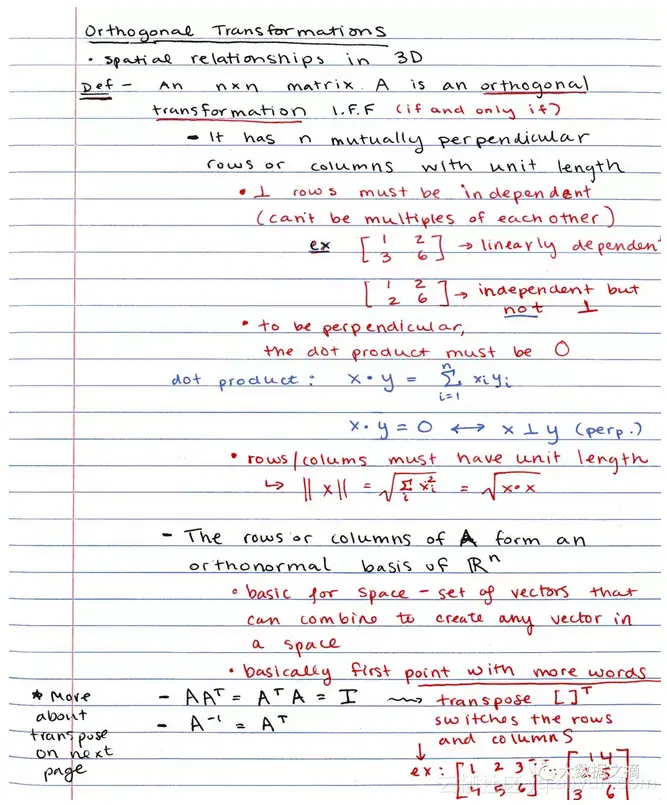 Orthogonal Transformations
• spatial relationships in 3D
Def - An n×n matrix A is an orthogonal
transformation I.F.F (if and only if)
- It has n mutually perpendicular
rows or columns with unit length
• ⊥ rows must be independent
(can't be multiples of each other)
ex [1 2 → linearly dependent
3 6]
[1 2 → independent but
2 6] not ⊥
• to be perpendicular,
the dot product must be 0
dot product: x • y = Σ xi yi
n
i=1
x • y = 0 ↔ x ⊥ y (perp.)
• rows/colums must have unit length
↳ ||x|| = √Σ xi² = √x•x
i
- The rows or columns of A form an
orthonormal basis of ℝⁿ
• basic for space - set of vectors that
can combine to create any vector in
a space
• basically first point with more words
- AAᵀ = AᵀA = I ⟿ transpose [ ]ᵀ
- A⁻¹ = Aᵀ switches the rows
and columns
* More
about
transpose
on next
page
ex: [1 2 3 [1 4
4 5 6] 5
3 6]
大数据文摘